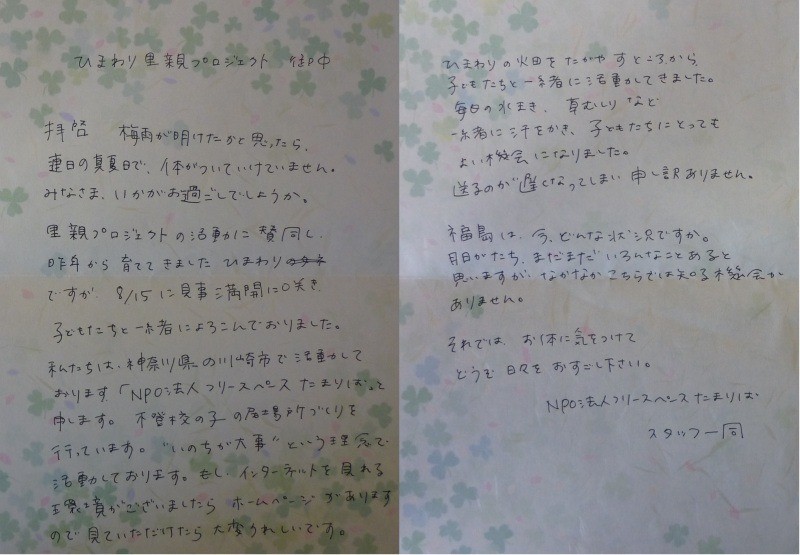 ひまわり里親プロジェクト 御中
拝啓 梅雨が明けたかと思ったら、
連日の真夏日で、体がついていけていません。
みなさま、いかがお過ごしでしょうか。
里親プロジェクトの活動に賛同し、
昨年から育ててきました ひまわり
ですが、8/15に見事満開に咲き
子どもたちと一緒によろこんでおりました。
私たちは、神奈川県の川崎市で活動して
おります「NPO法人フリースペースたまりば」と
申します。不登校の子の居場所づくりを
行っています。“いのちが大事”という理念で
活動しております。もし、インターネットを見れる
環境がございましたら ホームページがあります
ので見ていただけたら大変うれしいです。
ひまわりの畑をたがやすところから、
子どもたちと一緒に活動してきました。
毎日の水まき、草むしりなど
一緒に汗をかき、子どもたちにとっても
よい機会になりました。
送るのが遅くなってしまい申し訳ありません。
福島は、今、どんな状況ですか。
月日がたち、まだまだいろんなことあると
思いますが、なかなかこちらでは知る機会が
ありません。
それでは、お体に気をつけて
どうぞ日々をおすごし下さい。
NPO法人フリースペースたまりば
スタッフ一同